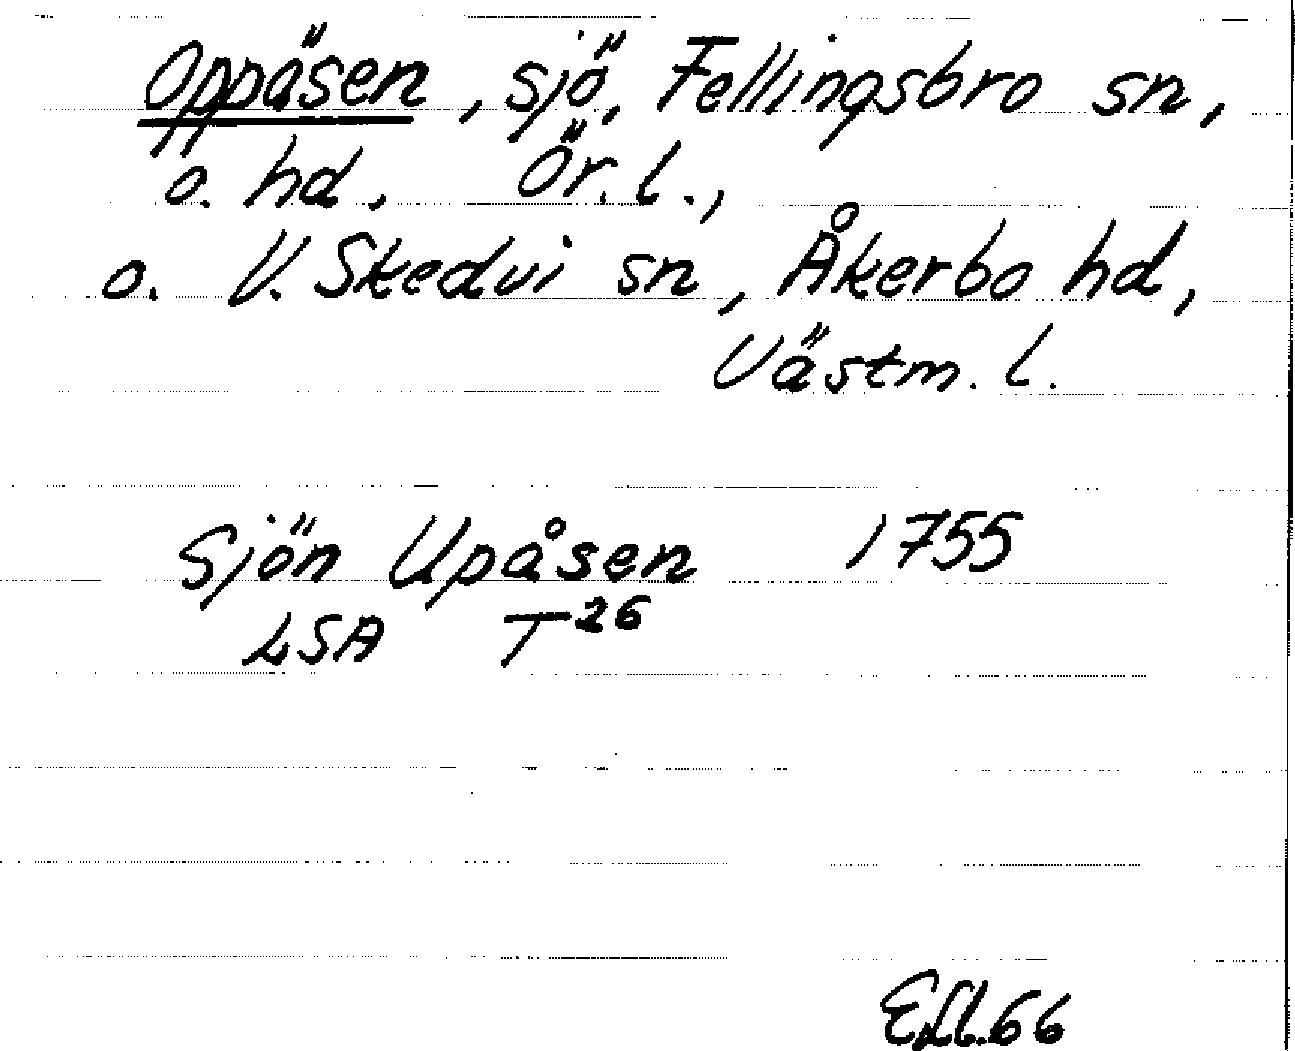 Oppäsen, sjö, Fellingsbro sn,
o. hd, Ör. l.,
o. V. Skedvi sn, Åkerbo hd,
Västm. l.
Sjön Upåsen 1755
LSA T26